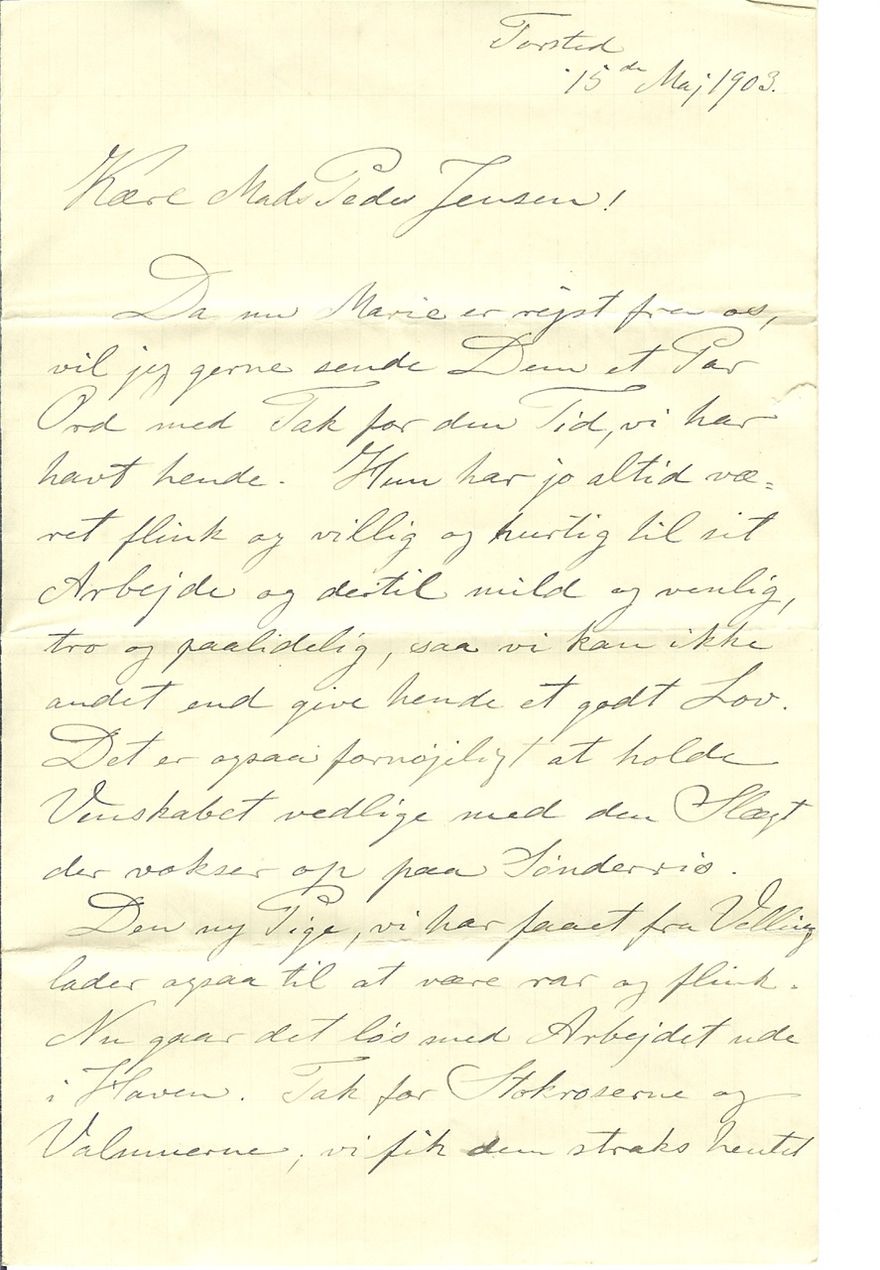 Torsted
15de Maj 1903.
Kære Mads Peder Jensen!
Da nu Marie er rejst fra os,
vil jeg gerne sende Dem et Par
Ord med Tak for den Tid, vi har
havt hende. Hun har jo altid væ=
ret flink og villig og hurtig til sit
Arbejde og dertil mild og venlig,
tro og paalidelig, saa vi kan ikke
andet end give hende et godt Lov.
Det er ogsaa fornøjeligt at holde
Venskabet vedlige med den Slægt
der vokser op paa Sønderriis.
Den ny Pige, vi har faaet fra Velling
lader ogsaa til at være rar og flink.
Nu gaar det løs med Arbejdet ude
i Haven. Tak for Stokroserne og
Valmuerne, vi fik dem straks hentet